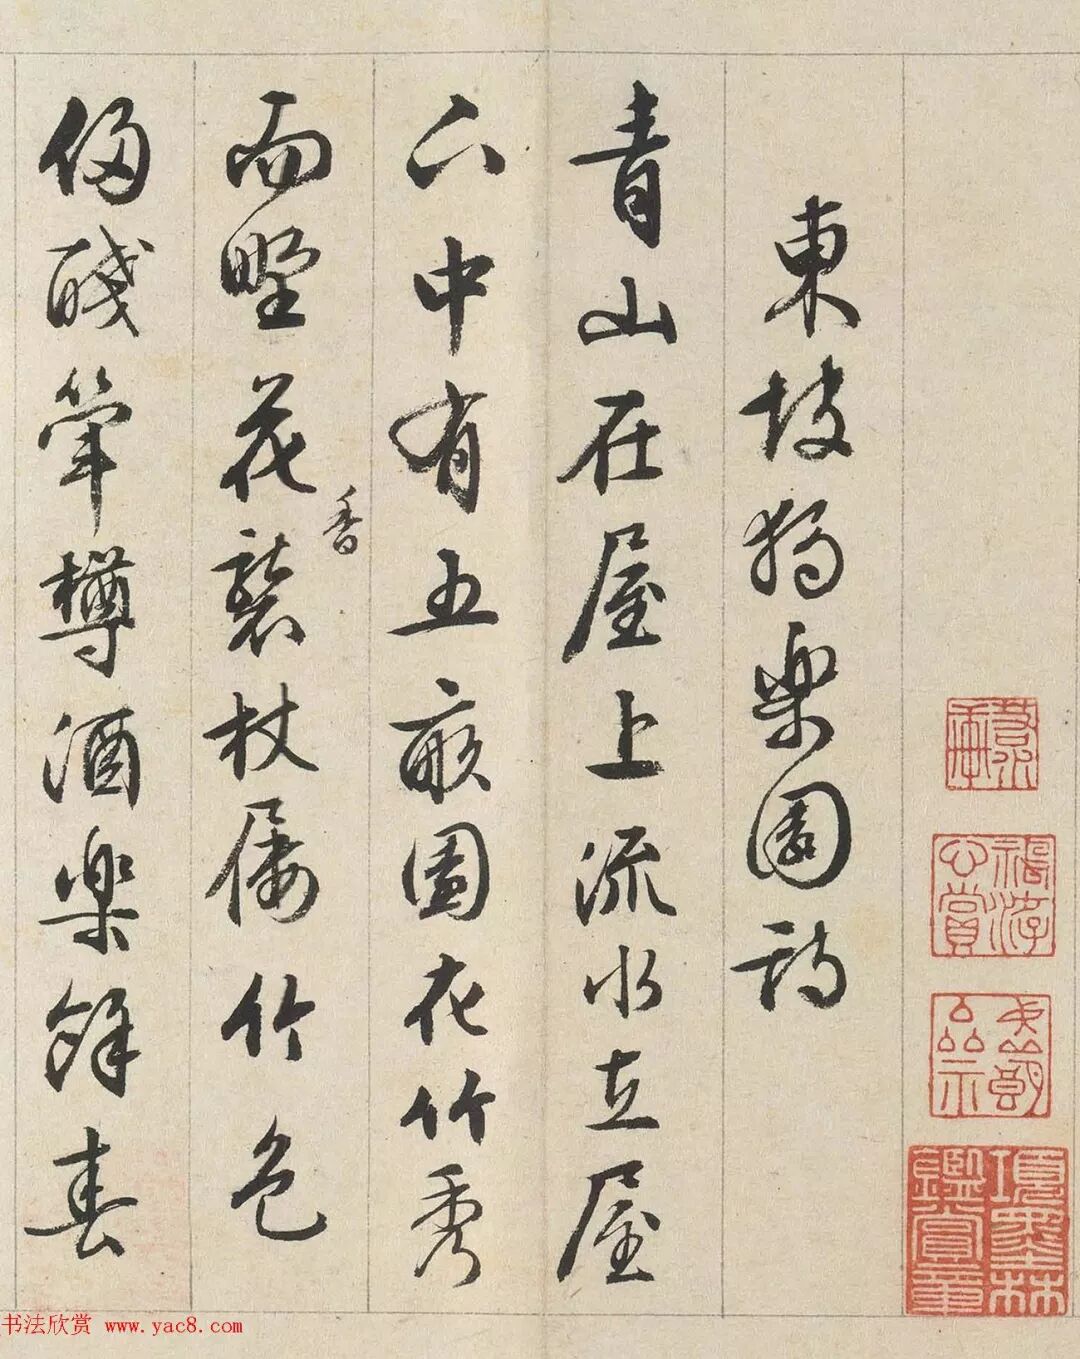 東坡獨樂園詩
青山在屋上流水在屋
下中有五畝園花竹秀
而野花襲杖屨竹色
香
侵醆斝樽酒樂餘春
項墨林鑑賞章
书法欣赏 www.yac8.com